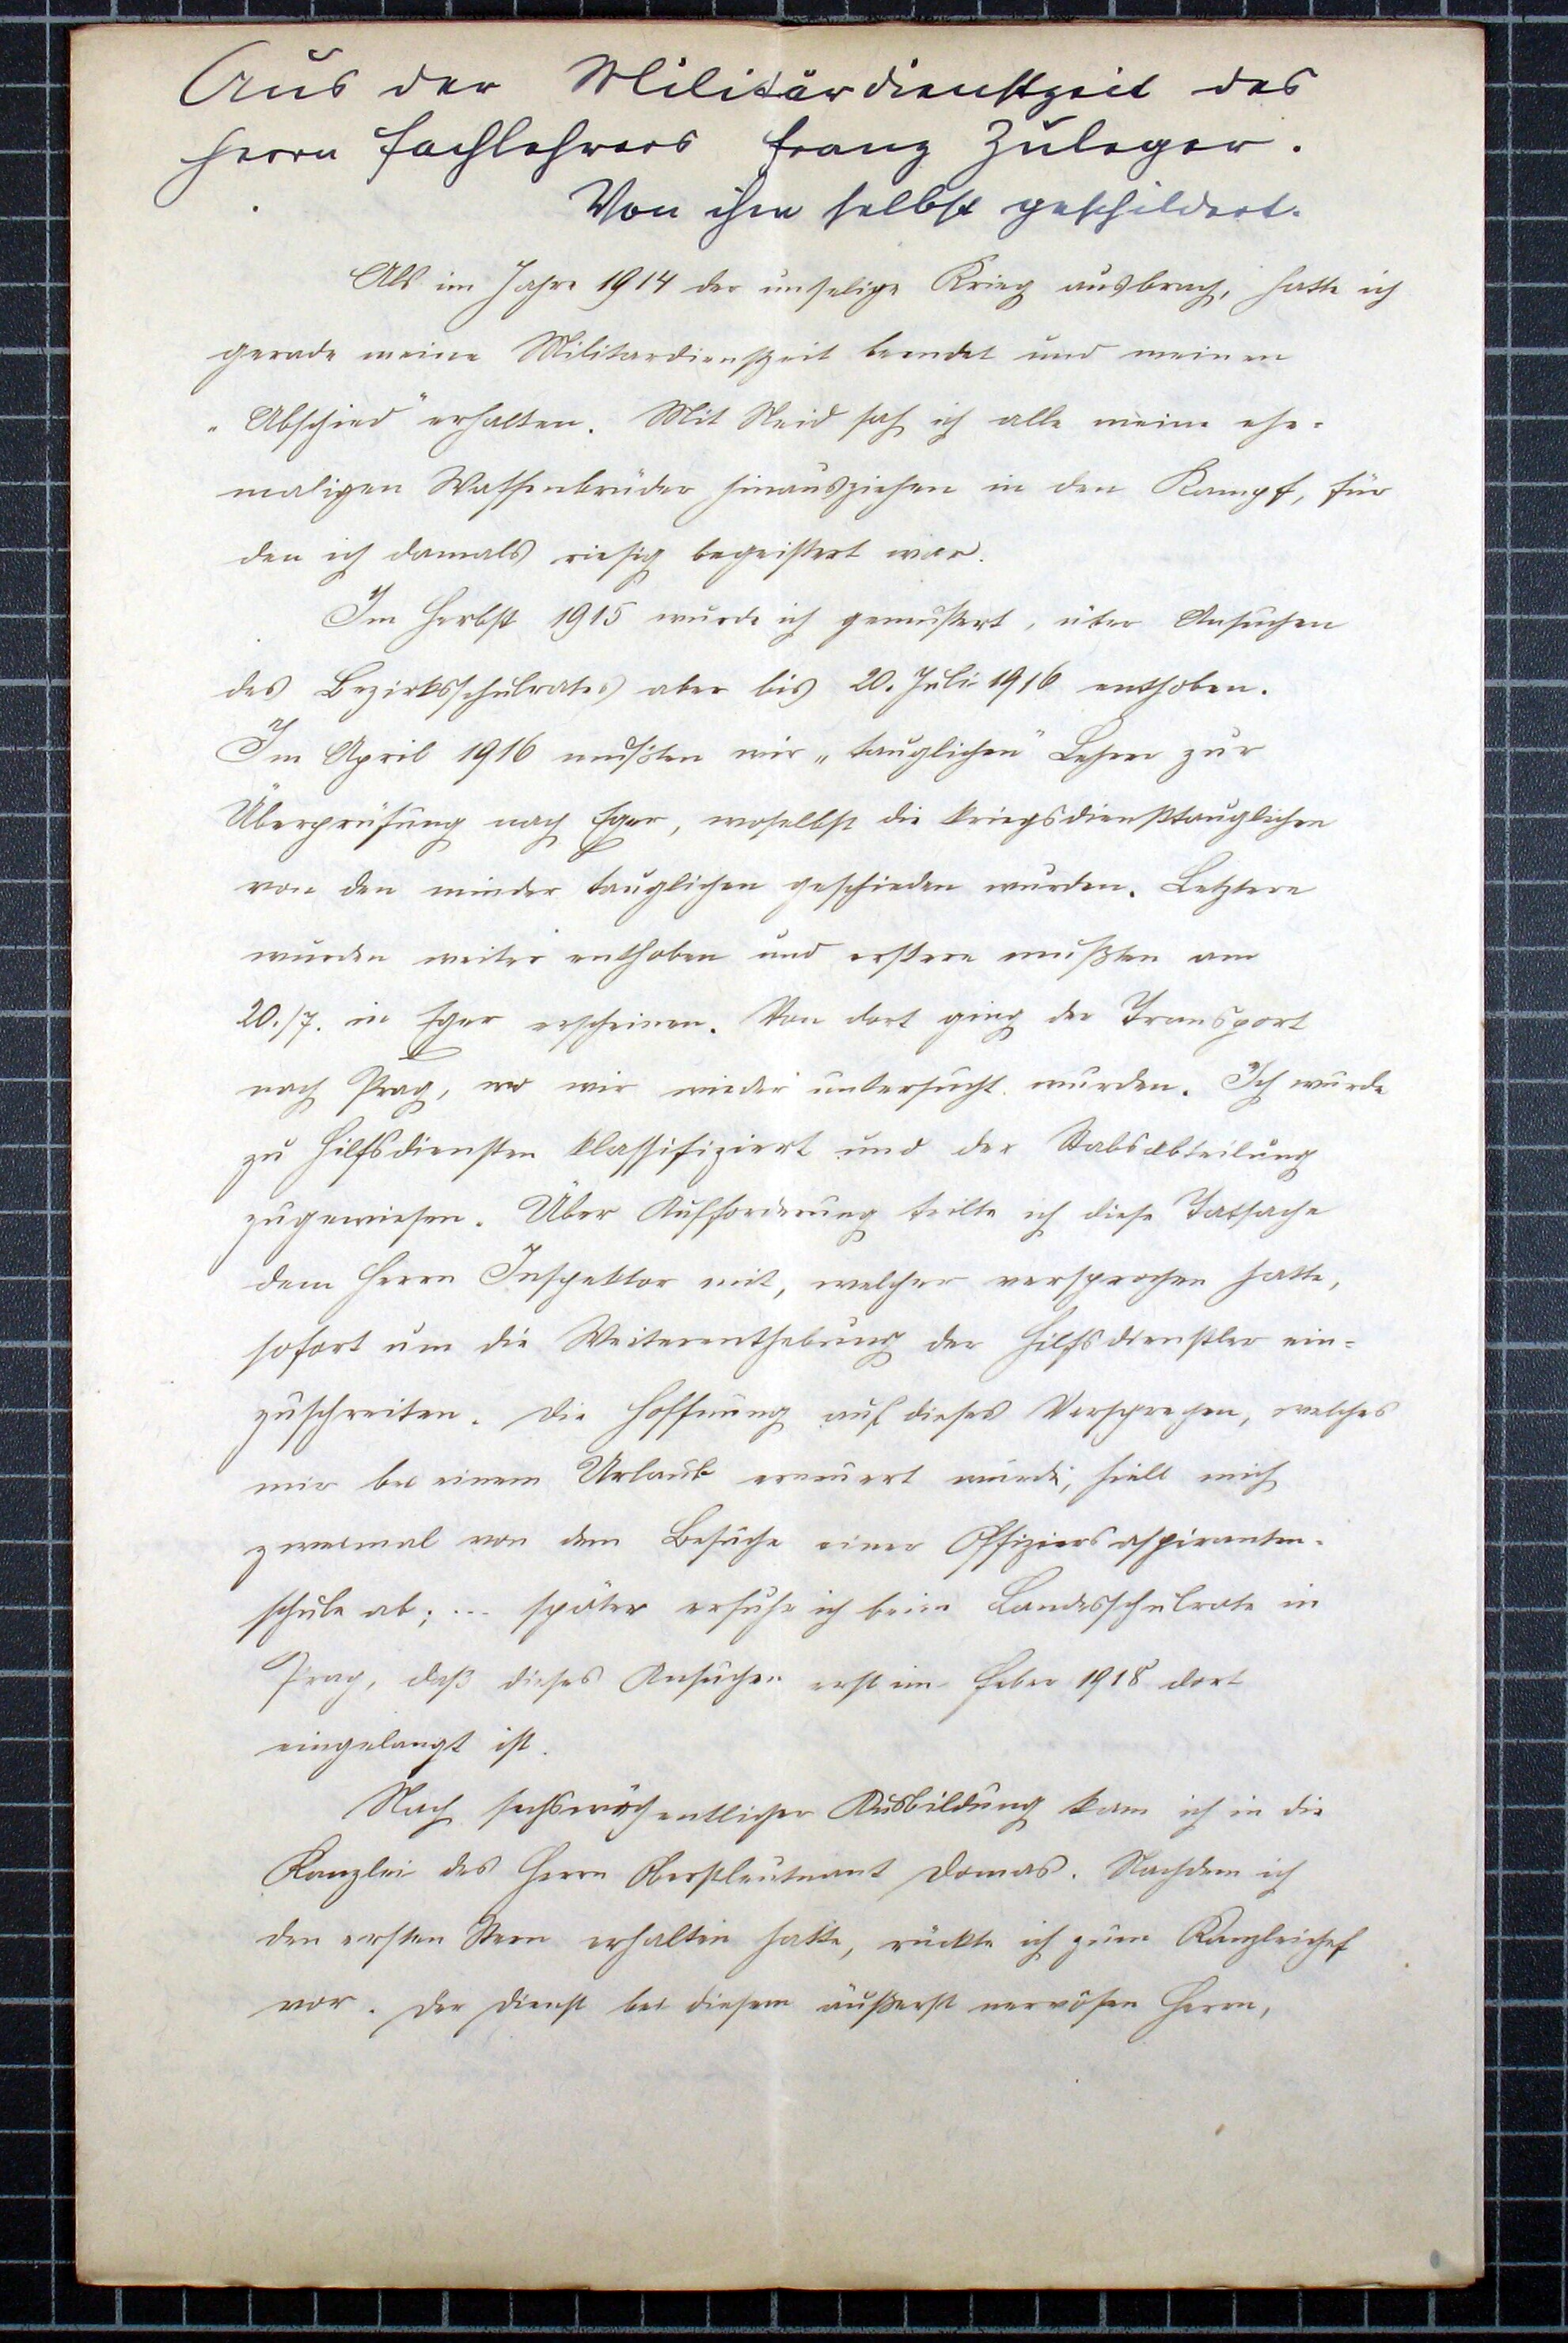 Aus der Militärdienstzeit des
Herrn Fachlehrers Franz Zuleger.
Von ihm selbst geschildert.
Als im Jahre 1914 der unselige Krieg ausbrach, hatte ich
gerade meine Militärdienstzeit beendet und meinen
„Abschied" erhalten. Mit Neid sah ich alle meine ehe-
maligen Waffenbrüder hinausziehen in den Kampf, für
den ich damals riesig begeistert war.
Im Herbst 1915 wurde ich gemustert, über Ansuchen
des Bezirksschulrates aber bis 20. Juli 1916 enthoben.
Im April 1916 mußten wir „tauglichen" Lehrer zur
Überprüfung nach Eger, woselbst die kriegsdiensttauglichen
von den minder tauglichen geschieden wurden. Letztere
wurden weiter enthoben und erstere mußten am
20./7. in Eger erscheinen. Von dort ging der Transport
nach Prag, wo wir wieder untersucht wurden. Ich wurde
zu Hilfsdiensten klassifiziert und der Stabsabteilung
zugewiesen. Über Aufforderung teilte ich diese Tatsache
dem Herrn Inspektor mit, welcher versprochen hatte,
sofort um die Weiterenthebung der Hilfsdienstler ein-
zuschreiten. Die Hoffnung auf dieses Versprechen, welches
mir bei einem Urlaub erneuert wurde, hielt mich
zweimal von dem Besuche einer Offiziersaspiranten-
schule ab; ... später erfuhr ich beim Landesschulrate in
Prag, daß dieses Ansuchen erst im Feber 1918 dort
eingelangt ist.
Nach sechswöchentlicher Ausbildung kam ich in die
Kanzlei des Herrn Oberstleutnant Domas. Nachdem ich
den ersten Stern erhalten hatte, rückte ich zum Kanzleichef
vor. Der Dienst bei diesem äußerst nervösen Herrn,